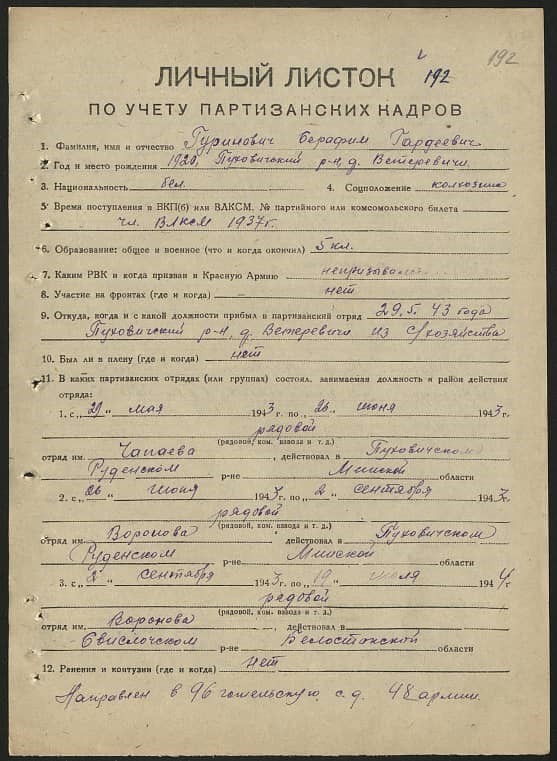 192
192
ЛИЧНЫЙ ЛИСТОК
ПО УЧЕТУ ПАРТИЗАНСКИХ КАДРОВ
1. Фамилия, имя и отчество Гуринович Серафим Гордеевич
2. Год и место рождения 1920, Пуховичский р-н, д. Ветеревичи
3. Национальность бел. 4. Соцположение колхозник
5. Время поступления в ВКП(б) или ВЛКСМ, № партийного или комсомольского билета
чл. ВЛКСМ 1937г.
6. Образование: общее и военное (что и когда окончил) 5 кл.
7. Каким РВК и когда призван в Красную Армию непризывался
8. Участие на фронтах (где и когда) нет
9. Откуда, когда и с какой должности прибыл в партизанский отряд 29.5.43 года
Пуховичский р-н, д. Ветеревичи из с/хозяйства
10. Был ли в плену (где и когда) нет
11. В каких партизанских отрядах (или группах) состоял, занимаемая должность и район действия
отряда:
1. с „29" мая 1943 г. по „26" июня 1943 г.
рядовой
(рядовой, ком. взвода и т. д.)
отряд им. Чапаева, действовал в Пуховичском
Руденском р-не Минской области
2. с „26" июня 1943 г. по „2" сентября 1943 г.
рядовой
(рядовой, ком. взвода и т. д.)
отряд им. Воронова действовал в Пуховичском
Руденском р-не Минской области
3. с „2" сентября 1943 г. по „19" июля 1944 г.
рядовой
(рядовой, ком. взвода и т. д.)
отряд им. Воронова, действовал в
Свислочском р-не Белостокской области
12. Ранения и контузии (где и когда) нет
Направлен в 96 гомельскую с.д. 48 армии.